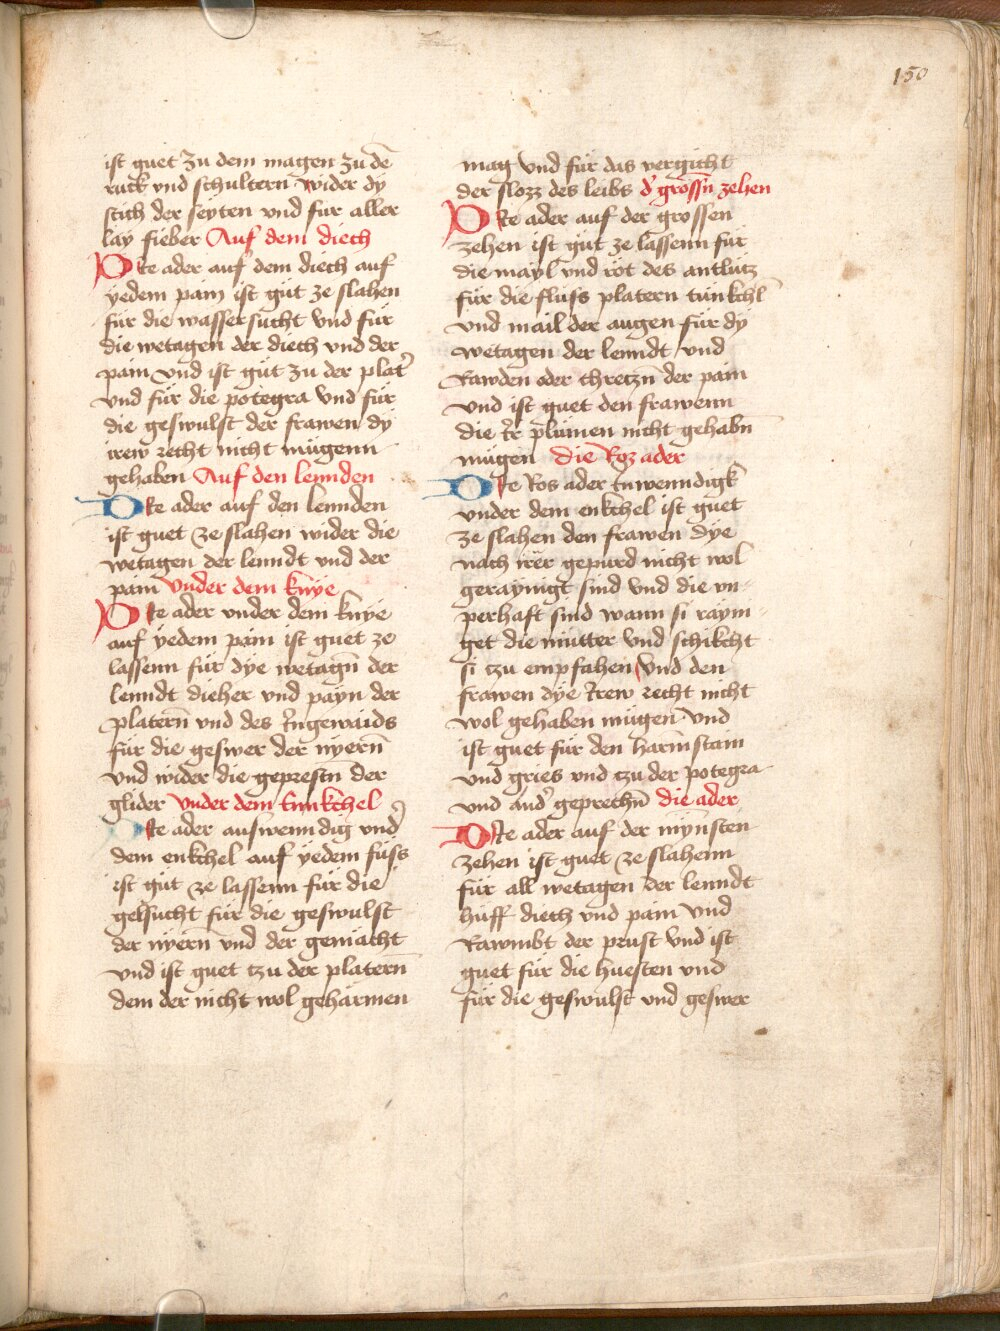 150
ist guet zu dem magen zu dē
ruck vnd schultern wider dy
stich der seyten vnd für aller
lay fieber Auf dem diech
Die ader auf dem diech auf
yedem pain ist güt ze slahen
für die wassersucht vnd für
die wetagen der diech vnd der
pain vnd ist güt zu der plat̉
vnd für die potegra vnd für
die geswulst der frawen dy
irew recht nicht mügenn
gehaben Auf den lennden
Die ader auf den lennden
ist guet ze slahen wider die
wetagen der lenndt vnd der
pain vnder dem knÿe
Die ader vnder dem knÿe
auf yedem pain ist guet ze
lassenn für dye wetagn̄ der
lenndt dieher vnd payn der
platern̄ vnd des Ingewaids
für die geswer der nÿern̄
vnd wider die geprestn̄ der
glider vnder dem Enkchel
Die ader auswenndig vnd̉
dem enkchel auf yedem fuss
ist güt ze lassenn für die
gelsucht für die geswulst
der nÿern̄ vnd der gemächt
vnd ist guet tzu der platern̄
dem der nicht wol geharmen
mag vnd für das vergicht
der slozz des leibs d̉ grossn̄ zehen
Die ader auf der grossen
zehen ist güt ze lassenn für
die mayl vnd röt des antlütz
für die fluss platern tunkchl
vnd mail der augen für dy
wetagen der lenndt vnd
Rawden oder chretzn̄ der pain
vnd ist guet den frawenn
die ir plumen nicht gehabn̄
mügen die Roz ader
Die Ros ader Inwenndigk
vnder dem enkchel ist guet
ze slahen den frawen dye
nach irer gepurd nicht wol
geraynigt sind vnd die vn-
perhaft sind wann si raym-
get die mütter vnd schikcht
si tzu empfahen vnd den
frawen dye Irew recht nicht
wol gehaben mügen vnd
ist guet für den harmstain
vnd gries vnd tzu der potegra
vnd and̉ geprechn̄ die ader
Die ader auf der mynsten
zehen ist guet ze slahenn
für all wetagen der lenndt
hüff diech vnd pain vnd
Rawmbt der prust vnd ist
guet für die huesten vnd
für die geswulst vnd geswer